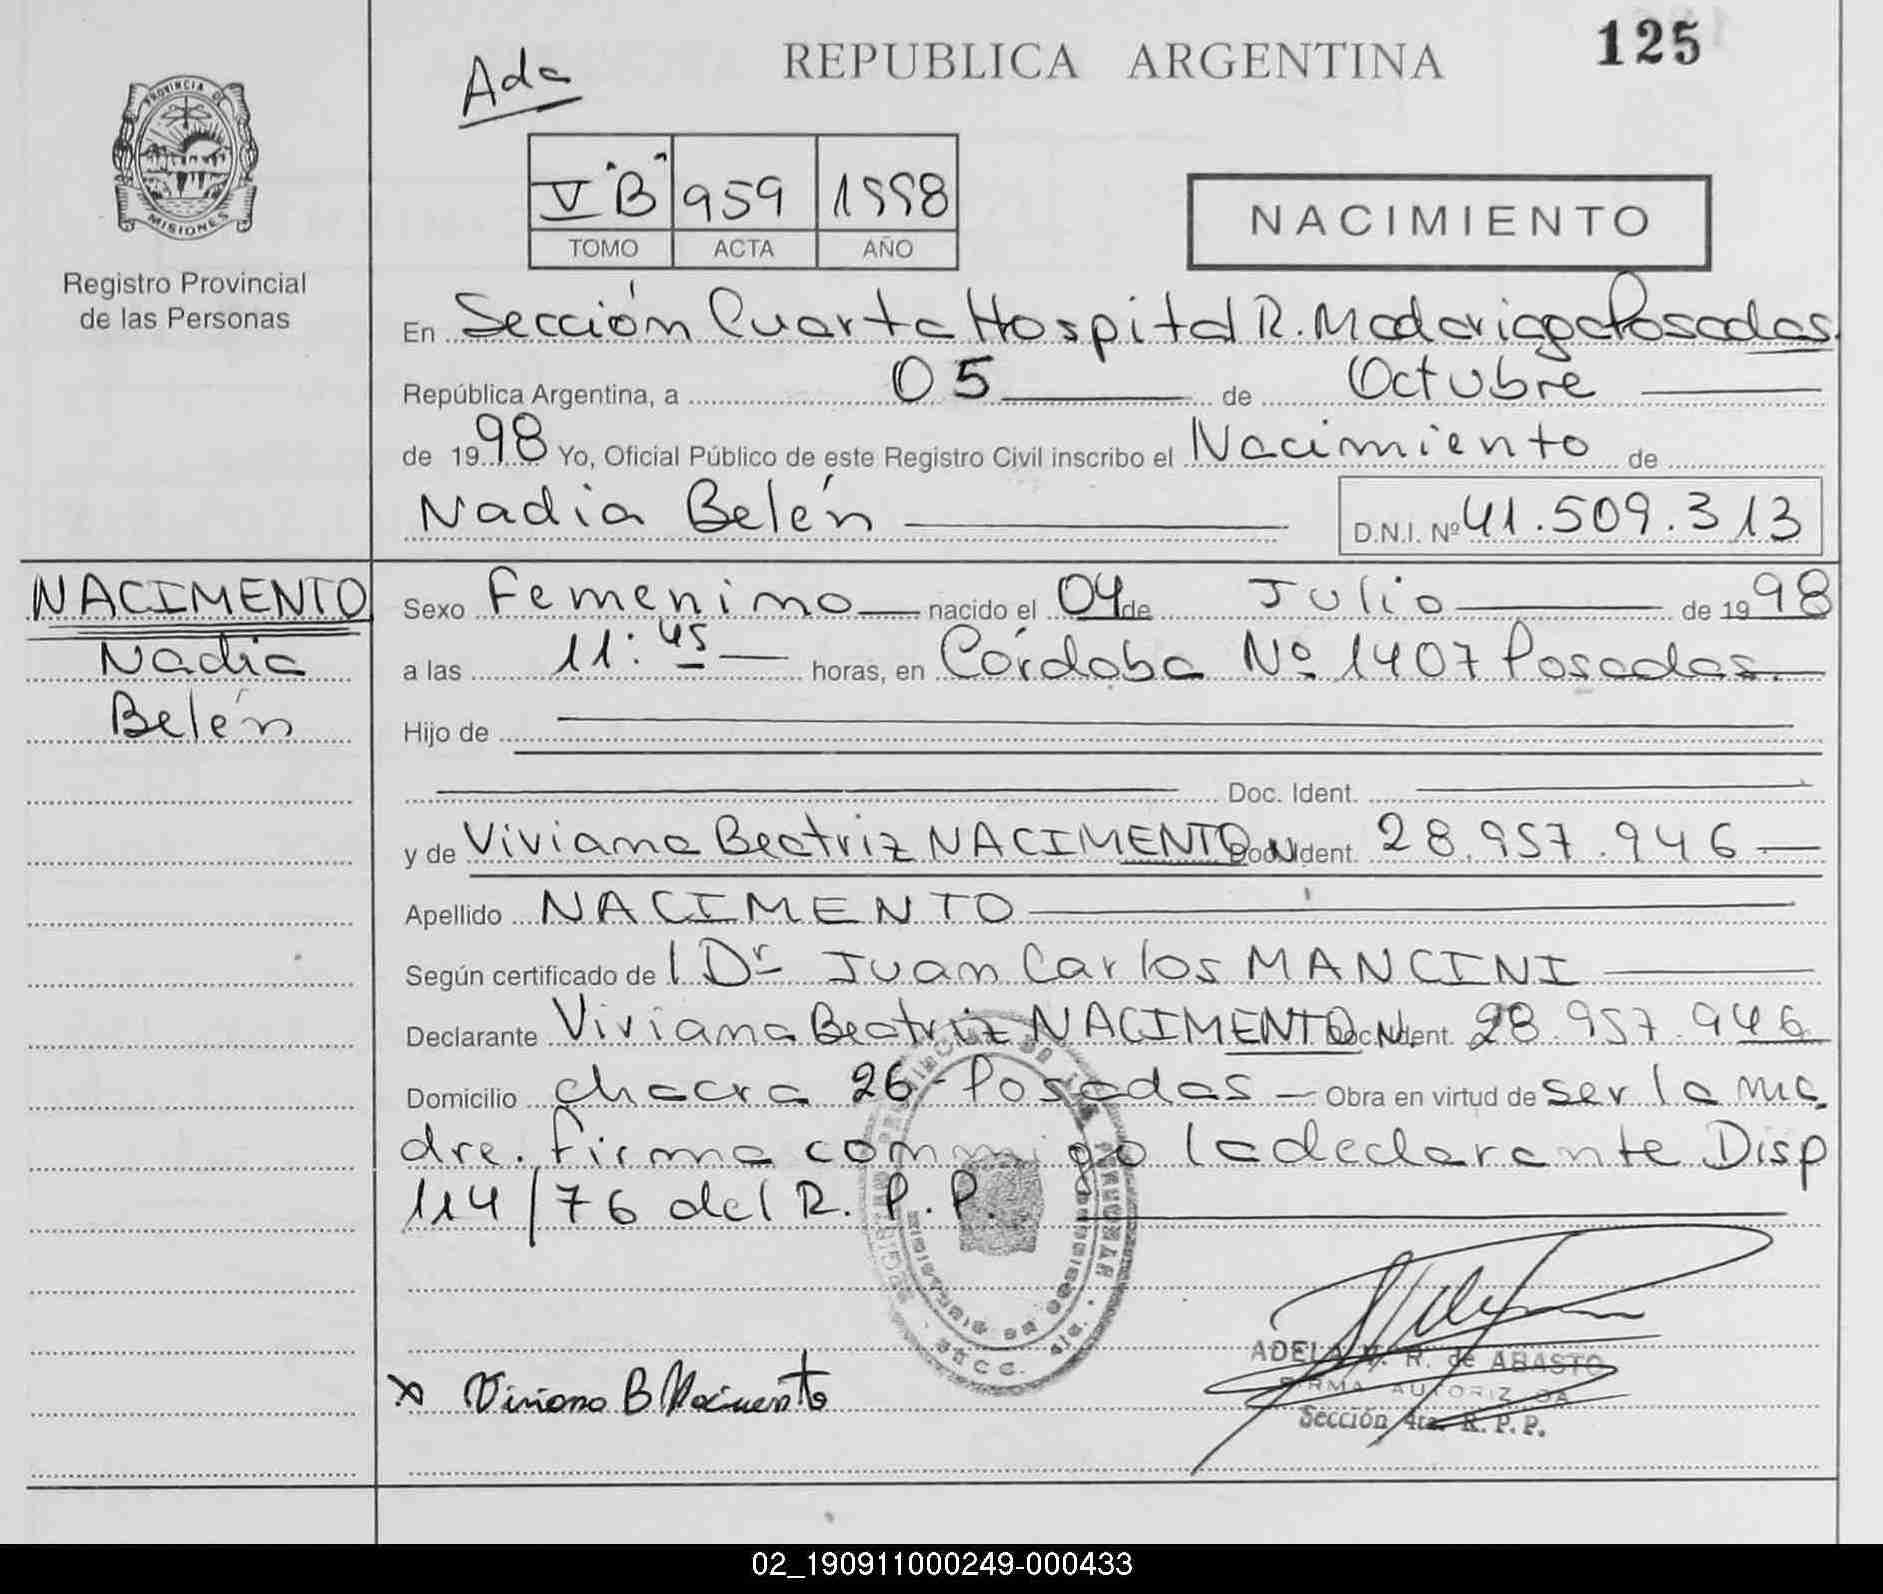 Ada
REPUBLICA ARGENTINA
125
PROVINCIA DE
MISIONES
Registro Provincial
de las Personas
V "B" 959 1998
TOMO ACTA AÑO
NACIMIENTO
En Sección Cuarta Hospital R. Madariaga Posadas
República Argentina, a 05 de Octubre
de 1998 Yo, Oficial Público de este Registro Civil inscribo el Nacimiento de
Nadia Belén D.N.I. Nº 41.509.313
NACIMENTO
Nadia
Belén
Sexo Femenino nacido el 04 de Julio de 1998
a las 11:45 horas, en Córdoba Nº 1407 Posadas.
Hijo de
Doc. Ident.
y de Viviana Beatriz NACIMENTO Doc. Ident. 28.957.946
Apellido NACIMENTO
Según certificado de l Dr Juan Carlos MANCINI
Declarante Viviana Beatriz NACIMENTO Doc. Ident. 28.957.946
Domicilio chacra 26 - Posadas - Obra en virtud de ser la ma
dre. Firma conmigo la declarante Disp
114/76 del R. P. P.
x Viviana B Nacimento
ADELA R. de ABASTO
FIRMA AUTORIZADA
Sección 4ta. R. P. P.
02_190911000249-000433